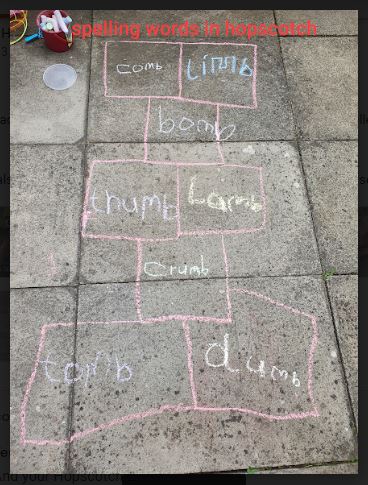 spelling words in hopscotch
comb limb
bomb
thumb Lamb
crumb
tomb dumb
And your Hopscotch